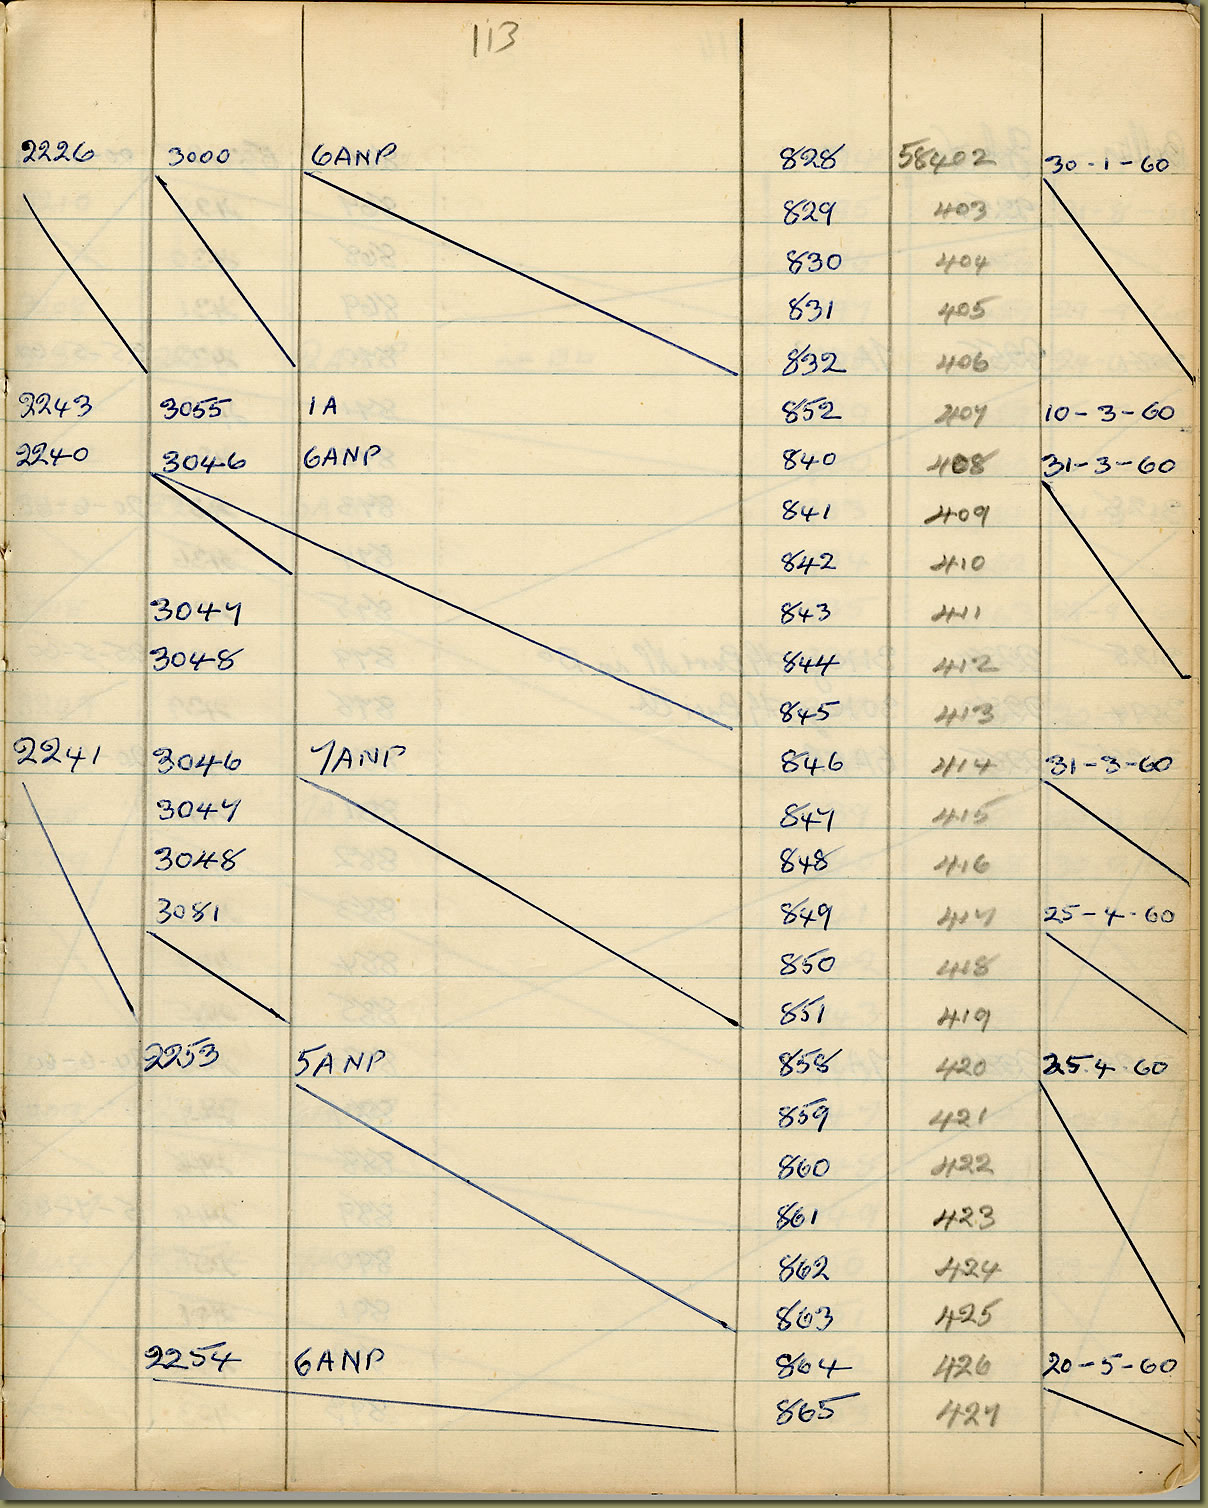 113
2226 3000 6ANP 828 58402 30-1-60
829 403
830 404
831 405
832 406
2243 3055 1A 852 407 10-3-60
2240 3046 6ANP 840 408 31-3-60
841 409
842 410
3047 843 411
3048 844 412
845 413
2241 3046 7ANP 846 414 31-3-60
3047 847 415
3048 848 416
3081 849 417 25-4-60
850 418
851 419
2253 5ANP 858 420 25.4.60
859 421
860 422
861 423
862 424
863 425
2254 6ANP 864 426 20-5-60
865 427